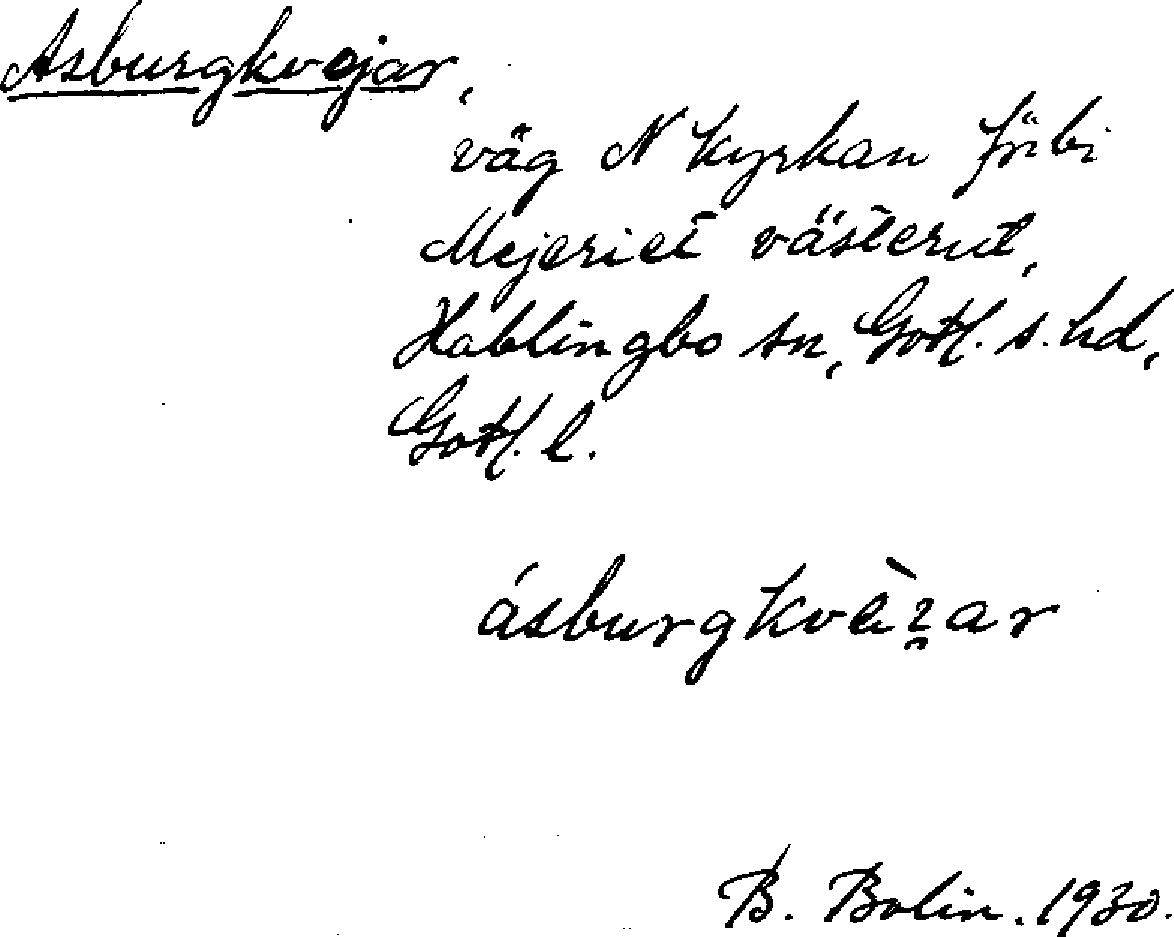 Asburgkvejar,
väg N kyrkan förbi
Mejeriet västerut,
Hablingbo sn, Gotl. s. hd,
Gotl. l.
ásburgkvè
B. Bolin. 1930.